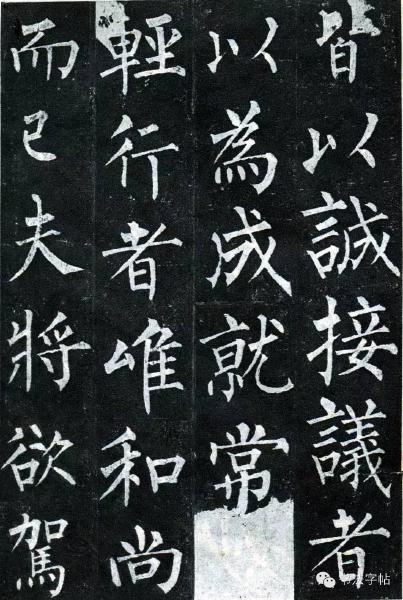 皆以誠接議者
以為成就常
輕行者唯和尚
而已夫將欲駕
书法字帖